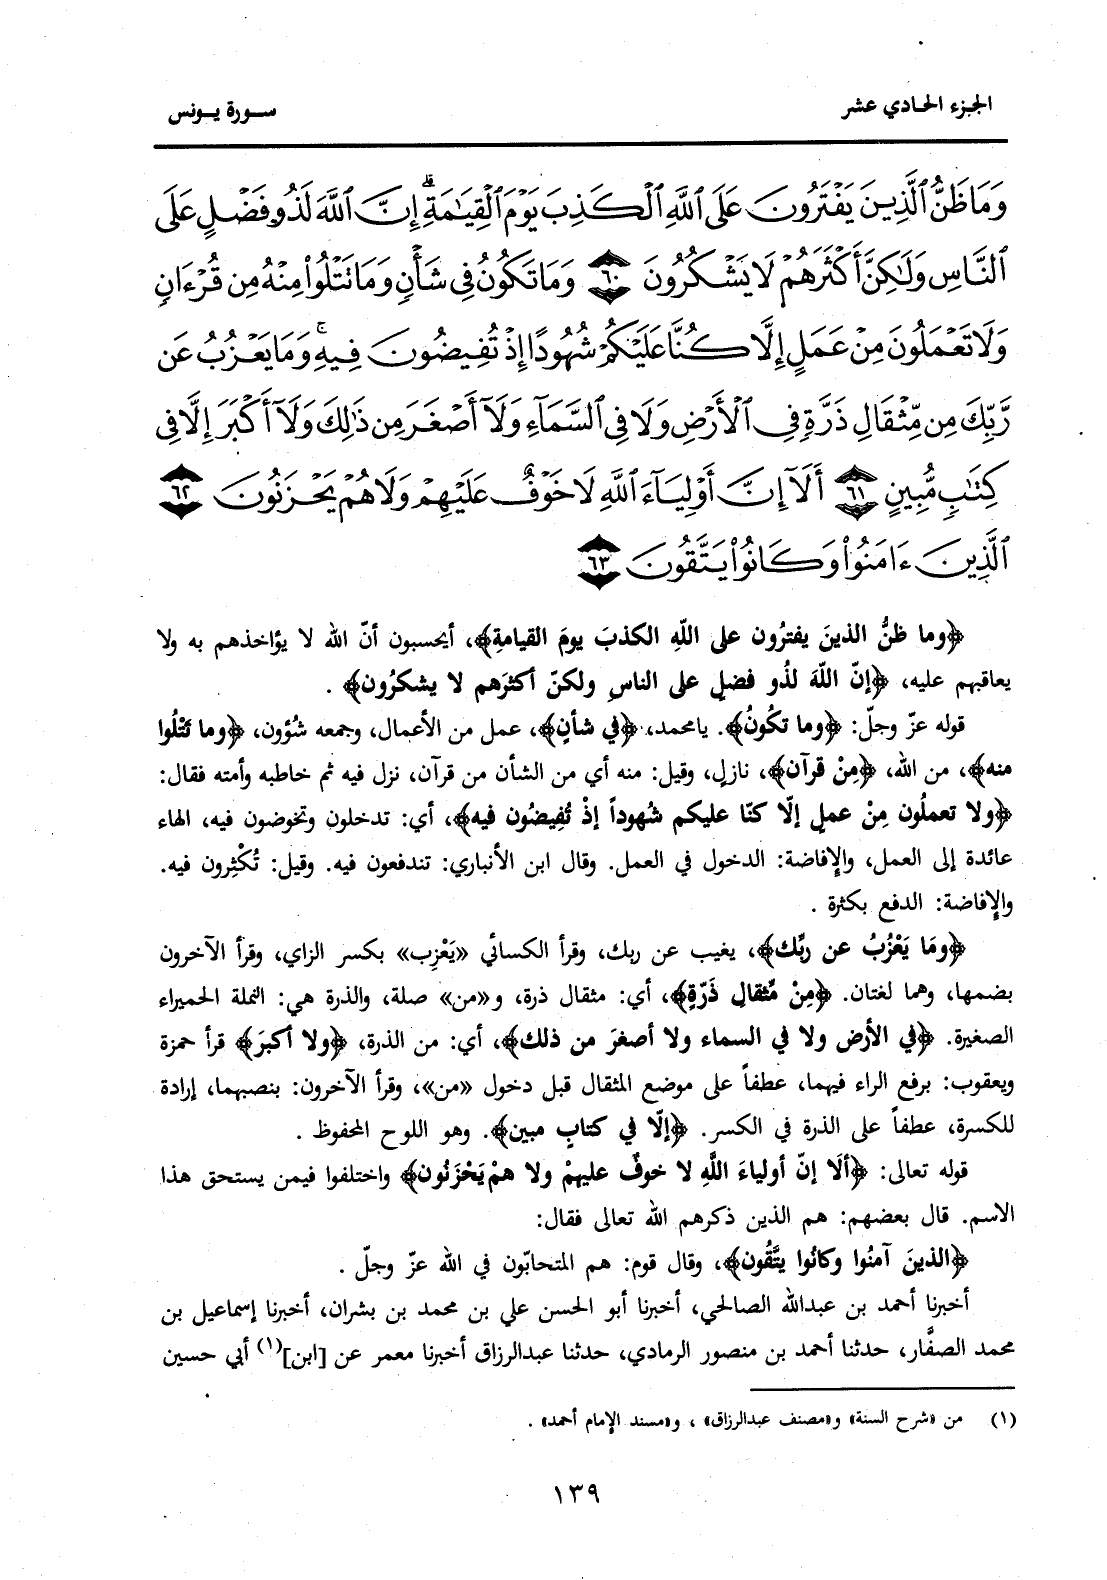 الجزء الحادي عشر
سورة يونس
وَمَا ظَنُّ ٱلَّذِينَ يَفْتَرُونَ عَلَى ٱللَّهِ ٱلْكَذِبَ يَوْمَ ٱلْقِيَٰمَةِ ۗ إِنَّ ٱللَّهَ لَذُو فَضْلٍ عَلَى
ٱلنَّاسِ وَلَٰكِنَّ أَكْثَرَهُمْ لَا يَشْكُرُونَ ٦٠ وَمَا تَكُونُ فِى شَأْنٍ وَمَا تَتْلُوا۟ مِنْهُ مِن قُرْءَانٍ
وَلَا تَعْمَلُونَ مِنْ عَمَلٍ إِلَّا كُنَّا عَلَيْكُمْ شُهُودًا إِذْ تُفِيضُونَ فِيهِ ۚ وَمَا يَعْزُبُ عَن
رَّبِّكَ مِن مِّثْقَالِ ذَرَّةٍ فِى ٱلْأَرْضِ وَلَا فِى ٱلسَّمَآءِ وَلَآ أَصْغَرَ مِن ذَٰلِكَ وَلَآ أَكْبَرَ إِلَّا فِى
كِتَٰبٍ مُّبِينٍ ٦١ أَلَآ إِنَّ أَوْلِيَآءَ ٱللَّهِ لَا خَوْفٌ عَلَيْهِمْ وَلَا هُمْ يَحْزَنُونَ ٦٢
ٱلَّذِينَ ءَامَنُوا۟ وَكَانُوا۟ يَتَّقُونَ ٦٣
﴿وما ظنُّ الذينَ يفترُون على اللّهِ الكذبَ يومَ القيامةِ﴾، أيحسبون أنّ الله لا يؤاخذهم به ولا
يعاقبهم عليه، ﴿إنّ اللّهَ لذُو فضلٍ على الناسِ ولكنّ أكثرَهم لا يشكرُون﴾ .
قوله عزّ وجلّ: ﴿وما تكُونُ﴾. يامحمد، ﴿في شأنٍ﴾، عمل من الأعمال، وجمعه شُؤون، ﴿وما تَتْلُوا
منه﴾، من الله، ﴿مِنْ قرآن﴾، نازلٍ، وقيل: منه أي من الشأن من قرآن، نزل فيه ثم خاطبه وأمته فقال:
﴿ولا تعملُون مِنْ عملٍ إلّا كنّا عليكم شُهوداً إذْ تُفِيضُون فيه﴾، أي: تدخلون وتخوضون فيه، الهاء
عائدة إلى العمل، والإفاضة: الدخول في العمل. وقال ابن الأنباري: تندفعون فيه. وقيل: تُكْثِرون فيه.
والإفاضة: الدفع بكثرة .
﴿وَمَا يَعْزُبُ عن ربِّك﴾، يغيب عن ربك، وقرأ الكسائي «يَعْزِب» بكسر الزاي، وقرأ الآخرون
بضمها، وهما لغتان. ﴿مِنْ مِّثقالِ ذَرّةٍ﴾، أي: مثقال ذرة، و«من» صلة، والذرة هي: النملة الحميراء
الصغيرة. ﴿في الأرض ولا في السماء ولا أصغرَ من ذلك﴾، أي: من الذرة، ﴿ولا أكبرَ﴾ قرأ حمزة
ويعقوب: برفع الراء فيهما، عطفاً على موضع المثقال قبل دخول «من»، وقرأ الآخرون: بنصبهما، إرادة
للكسرة، عطفاً على الذرة في الكسر. ﴿إلّا في كتابٍ مبين﴾. وهو اللوح المحفوظ .
قوله تعالى: ﴿ألَا إنّ أولياءَ اللَّهِ لا خوفٌ عليهمْ ولا همْ يَحْزَنُون﴾ واختلفوا فيمن يستحق هذا
الاسم. قال بعضهم: هم الذين ذكرهم الله تعالى فقال:
﴿الذينَ آمنُوا وكانُوا يتَّقُون﴾، وقال قوم: هم المتحابّون في الله عزّ وجلّ .
أخبرنا أحمد بن عبدالله الصالحي، أخبرنا أبو الحسن علي بن محمد بن بشران، أخبرنا إسماعيل بن
محمد الصفَّار، حدثنا أحمد بن منصور الرمادي، حدثنا عبدالرزاق أخبرنا معمر عن [ابن](١) أبي حسين
(١) من «شرح السنة» و«مصنف عبدالرزاق» ، و«مسند الإمام أحمد» .
١٣٩